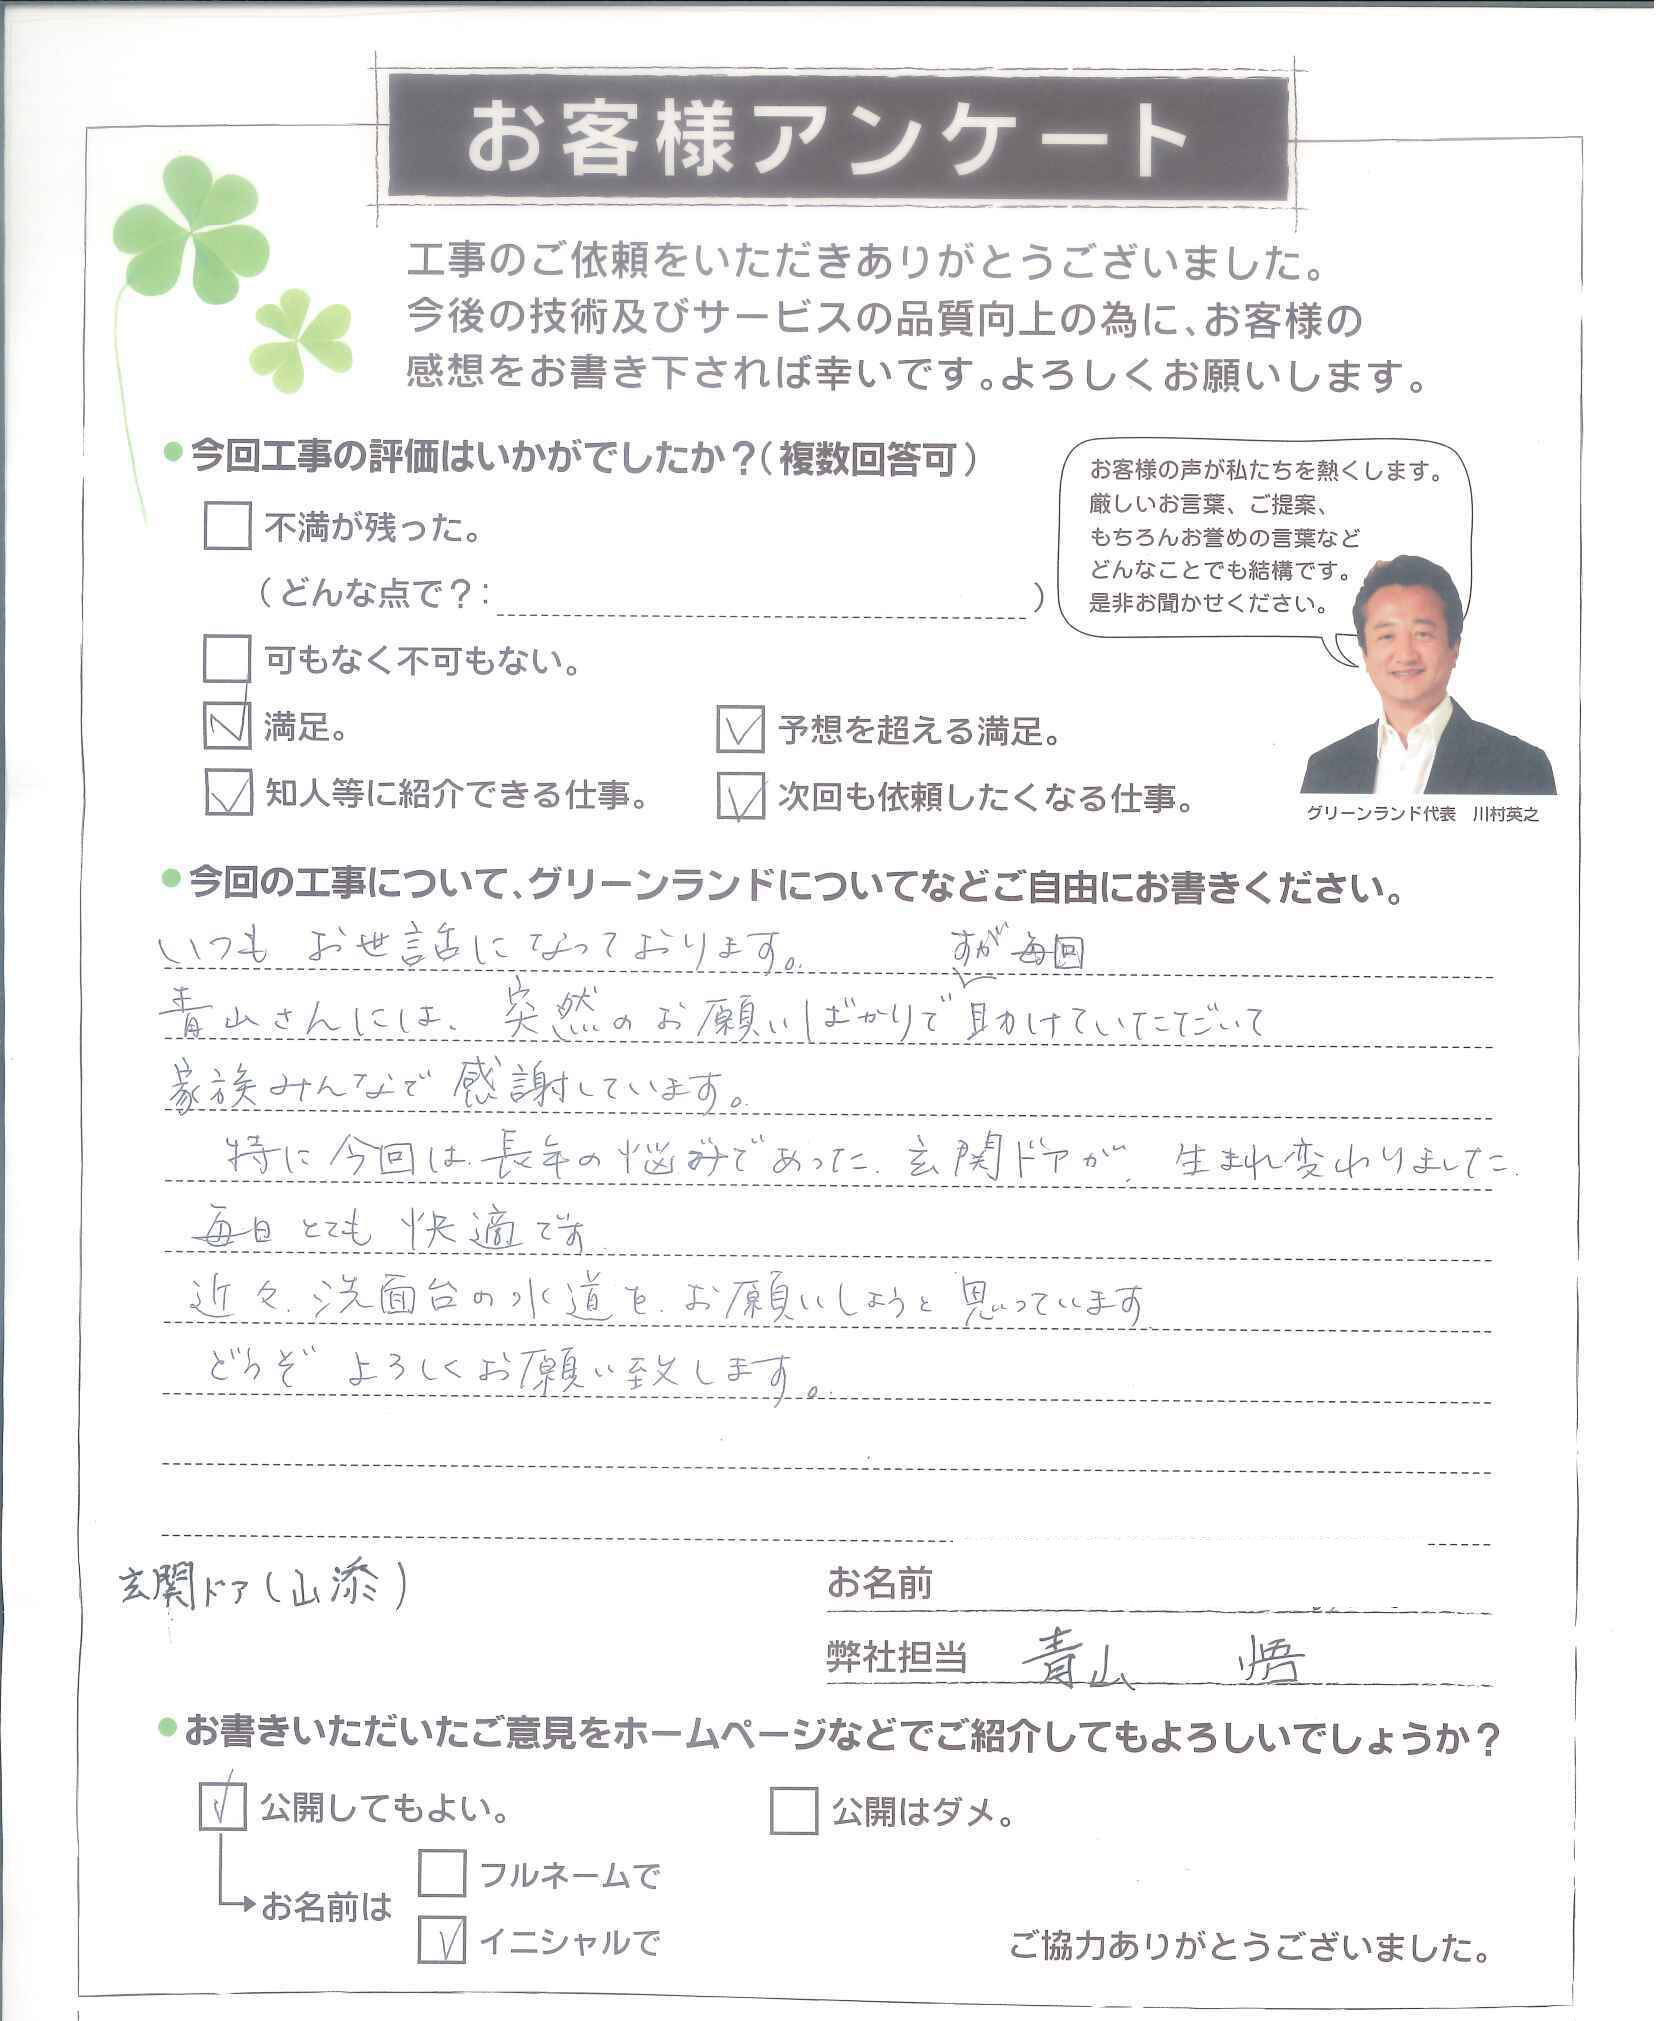 お客様アンケート
工事のご依頼をいただきありがとうございました。
今後の技術及びサービスの品質向上の為に、お客様の
感想をお書き下されば幸いです。よろしくお願いします。
●今回工事の評価はいかがでしたか？(複数回答可)
不満が残った。
(どんな点で？: )
可もなく不可もない。
満足。
予想を超える満足。
知人等に紹介できる仕事。
次回も依頼したくなる仕事。
お客様の声が私たちを熱くします。
厳しいお言葉、ご提案、
もちろんお誉めの言葉など
どんなことでも結構です。
是非お聞かせください。
グリーンランド代表 川村英之
●今回の工事について、グリーンランドについてなどご自由にお書きください。
いつも お世話になっております。
すが 毎回
青山さんには、突然のお願いばかりで 助けていただいて
家族みんなで 感謝しています。
特に 今回は、長年の悩みであった、玄関ドアが、生まれ変わりました。
毎日 とても 快適です
近々、洗面台の水道を、お願いしようと 思っています
どうぞ よろしくお願い致します。
玄関ドア(山添)
お名前
弊社担当 青山 悟
●お書きいただいたご意見をホームページなどでご紹介してもよろしいでしょうか？
公開してもよい。
公開はダメ。
お名前は
フルネームで
イニシャルで
ご協力ありがとうございました。